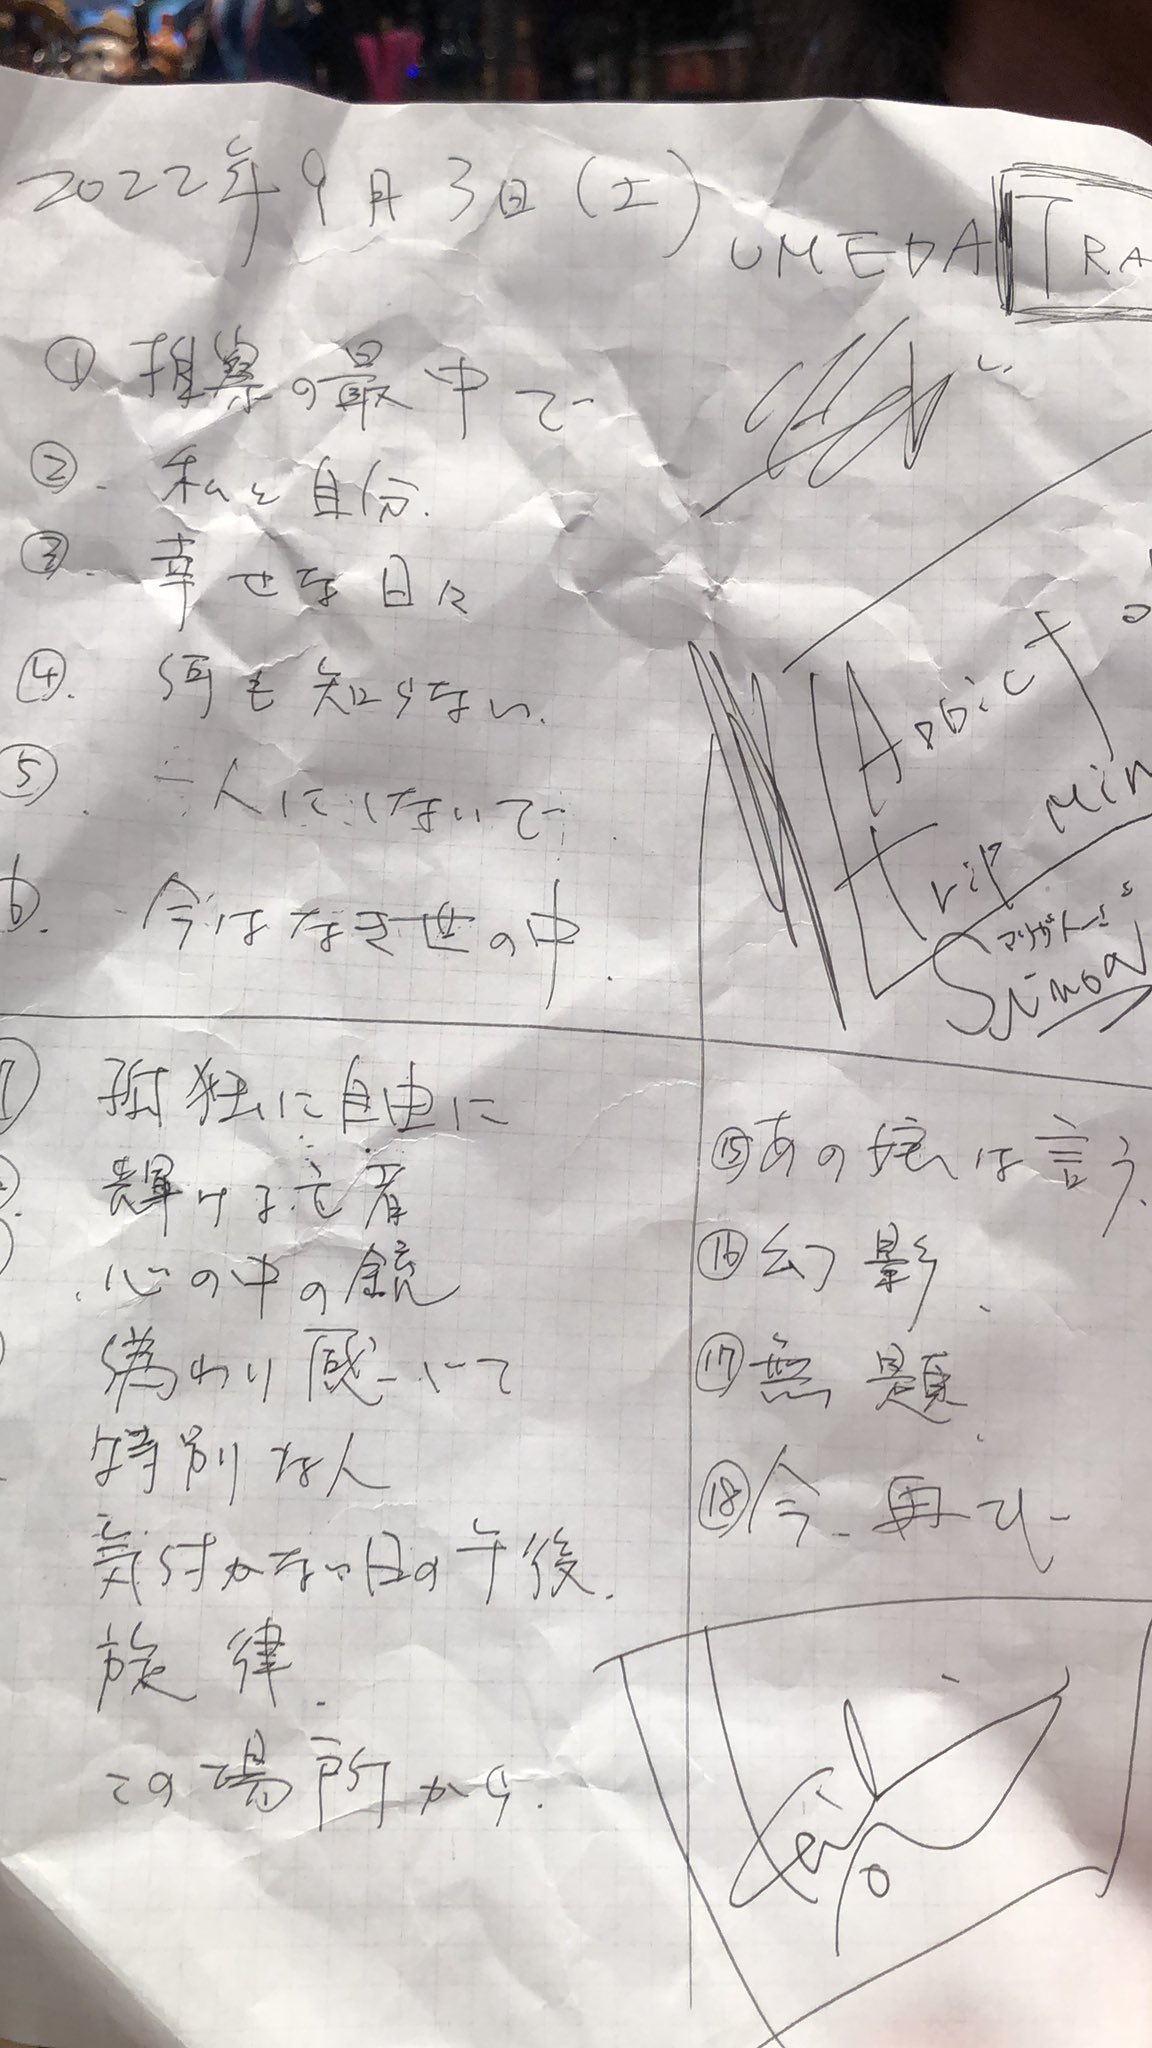 2022年9月3日(土)
UMEDA TRA
① 推察の最中で
②. 私と自分.
③. 幸せな日々
④. 何も知らない.
⑤. 一人にしないで.
6. 今はなき世の中.
Addict
trip Min
マリガトーミ
⑦ 孤独に自由に
輝ける亡者
心の中の鏡
偽わり感じて
特別な人
気付かない日の午後.
旋律.
この場所から.
⑮あの娘は言う.
⑯幻影.
⑰無題.
⑱今、再び